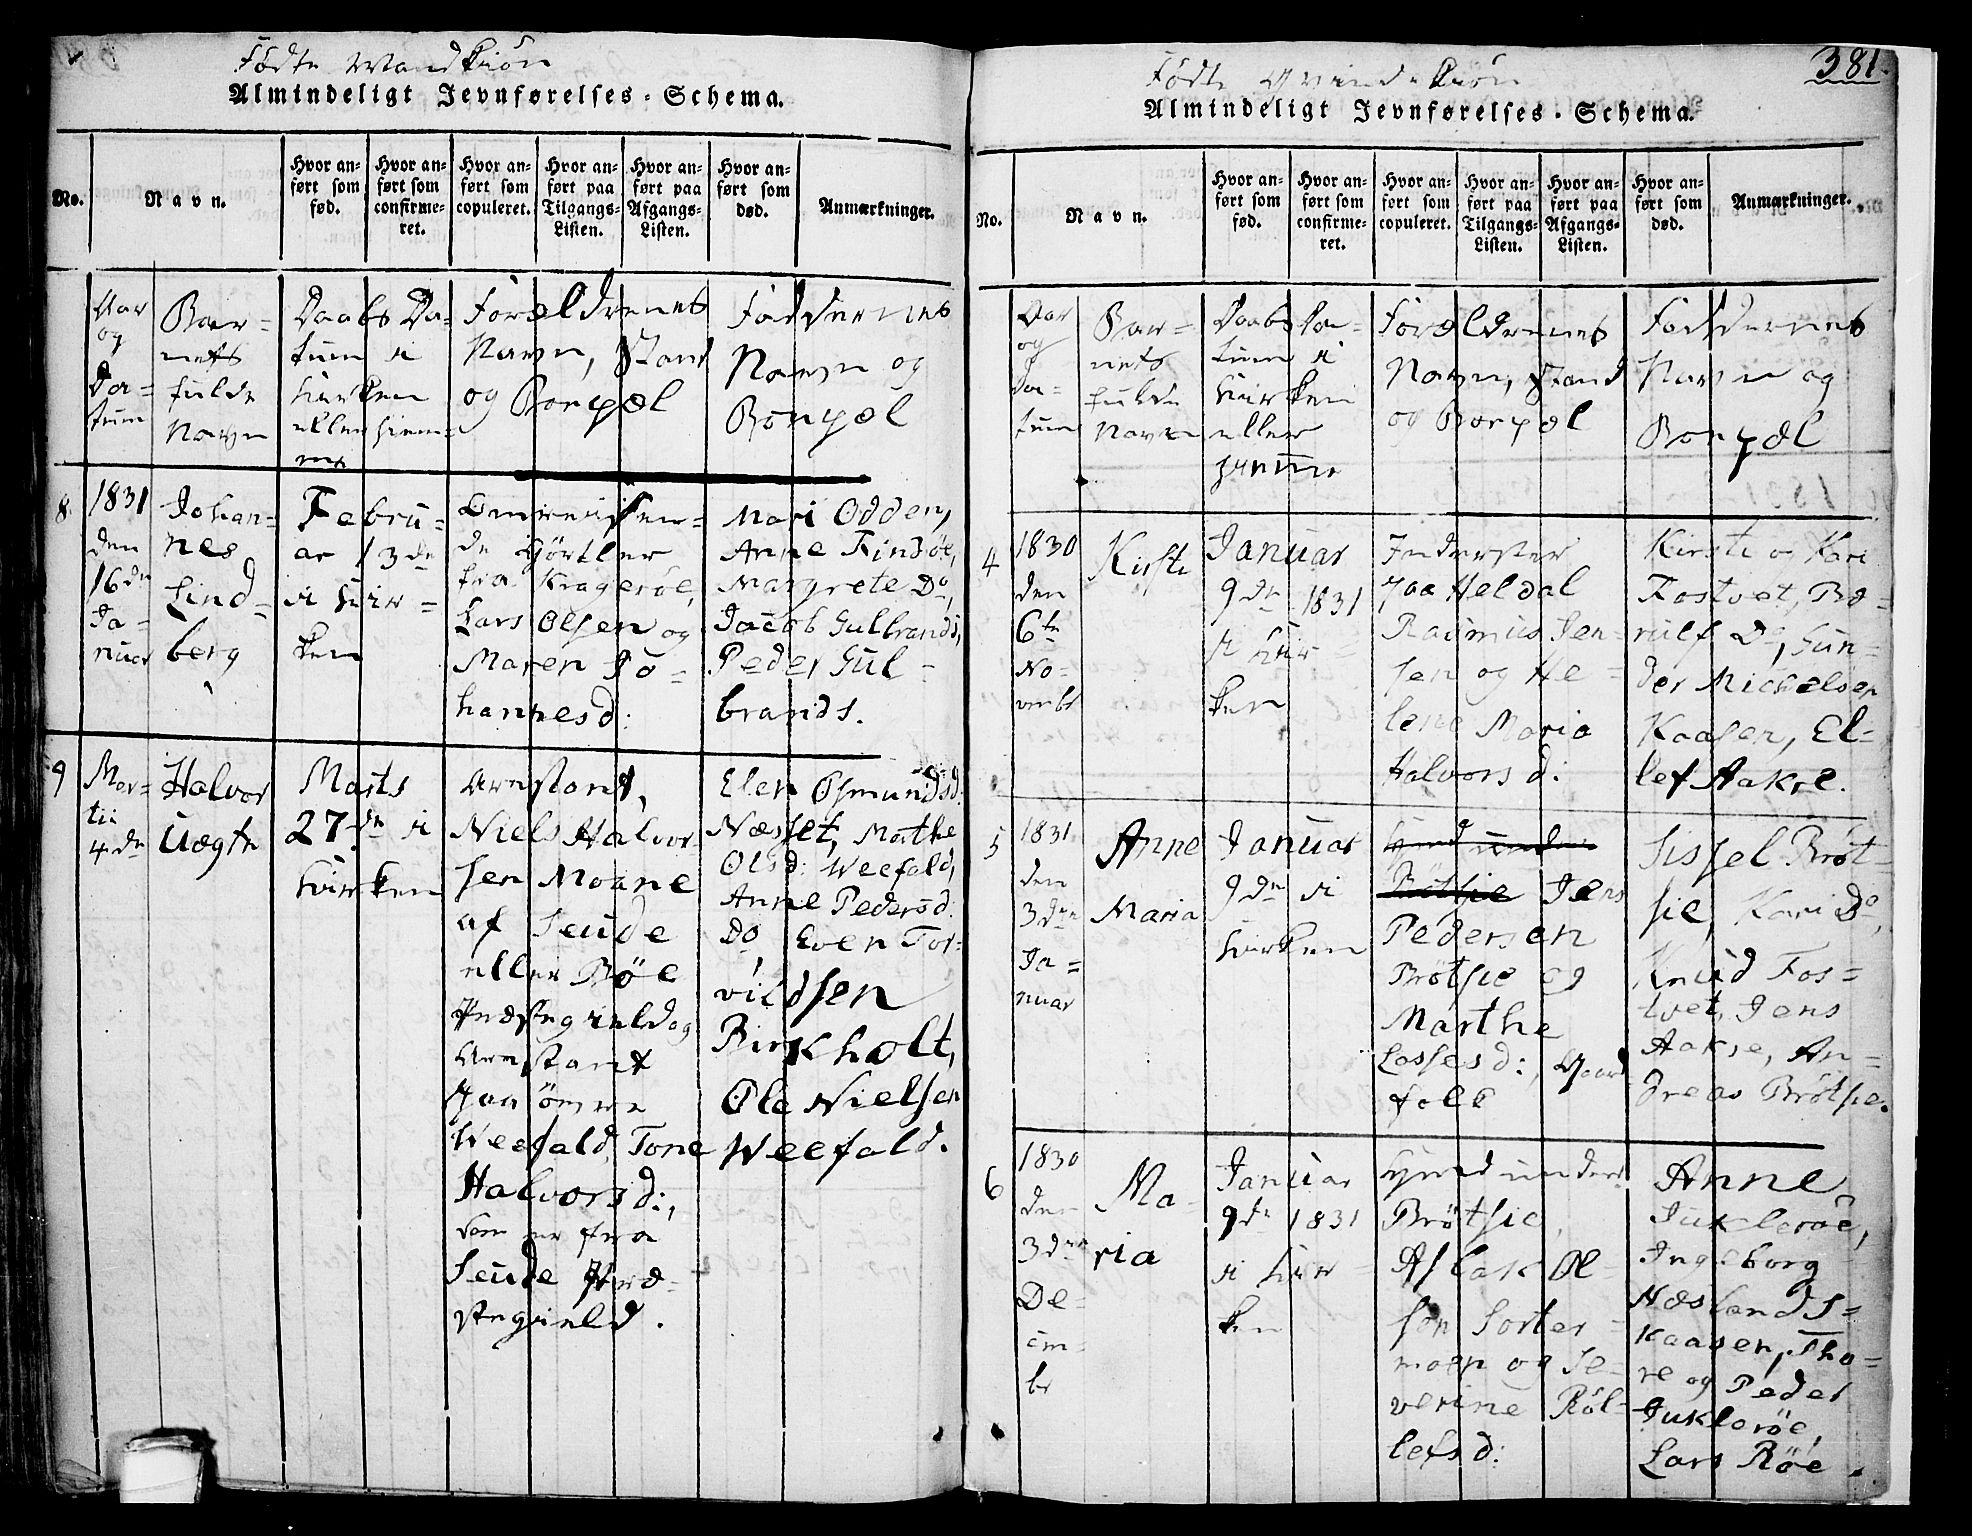 Fødte Mandkiön
Almindeligt Jevnførelses-Schema.
No.
Navn.
Hvor an-
ført som
fød.
Hvor an-
ført som
confirme-
ret.
Hvor an-
ført som
copuleret.
Hvor an-
ført paa
Tilgangs-
Listen.
Hvor an-
ført paa
Afgangs-
Listen.
Hvor an-
ført som
død.
Anmærkninger.
Aar
og
Da=
tum
Bar=
nets
fulde
Navn
Daabs Da=
tum i
Kirken
eller Hiem=
me
Forældrenes
Navn, Stand
og Bopæl
Faddernes
Navn og
Bopæl
8.
1831
den
16de
Ja=
nuar
Johan=
nes
Lind=
berg
Febru=
ar 13de
i Kir=
ken
Omreisen=
de Görtler
fra Kragerøe,
Lars Olsen og
Maren Jo=
hannesd:
Mari Odden,
Anne Findsöe,
Margrete Do,
Jacob Gulbrands,
Peder Gul=
brands.
9
Mar=
tii
4de
Halvor
Üegte
Marts
27de i
Kirken
Arrestant,
Niels Halvor
sen Moane
af Seude
eller Böe
Præstegield og
Arrestant
paa
Weefald, Tone
Halvorsd:,
som er fra
Seude Præ=
stegield.
Elen Osmundsd:
Næsset, Marthe
Olsd: Weefald,
Anne Pedersd:
Do, Even Tor=
vildsen
Birkholt,
Ole Nielsen
Weefald.
381.
Födte Qvindekiön
Almindeligt Jevnførelses-Schema.
No.
Navn.
Hvor an-
ført som
fød.
Hvor an-
ført som
confirme-
ret.
Hvor an-
ført som
copuleret.
Hvor an-
ført paa
Tilgangs-
Listen.
Hvor an-
ført paa
Afgangs-
Listen.
Hvor an-
ført som
død.
Anmærkninger.
Aar
og
Da=
tum
Bar=
nets
fulde
Navn
Daabs Da=
tum i
Kirken
eller
Hiemme
Forældrenes
Navn, Stand
og Bopæl
Faddernes
Navn og
Bopæl
4
1830
den
6te
No=
vembr
Kirsti
Januar
9de 1831
i Kir=
ken
Inderster
paa Heldal
Rasmus Jen=
sen og He=
lene Maria
Halvorsd:
Kirsti og Kari
Fostvet, Bo=
rulf Do, Gun=
der Michelsen
Kaasen, El=
lef Aakre.
5
1831
den
3die
Ja=
nuar
Anne
Maria
Januar
9de i
Kirken
Brötsie Jens
Pedersen
Brötsie og
Marthe
Lassesd:, Gaard
folk
Sissel Bröt=
sie, Kari Do,
Knud Fos=
tvet, Jens
Aakre, An=
dreas Brötsie.
6
1830
den
3die
De=
cem=
br
Ma=
ria
Januar
9de 1831
i Kir=
ken
Huusmand under
Brötsie,
Aslak Ol=
sen Sorter=
moen og Se=
verine Röl=
lefsd:
Anne
Jukleröe,
Ingeborg
Næslands=
kaasen, Tho=
re og Peder
Jukleröe,
Lars Röe.